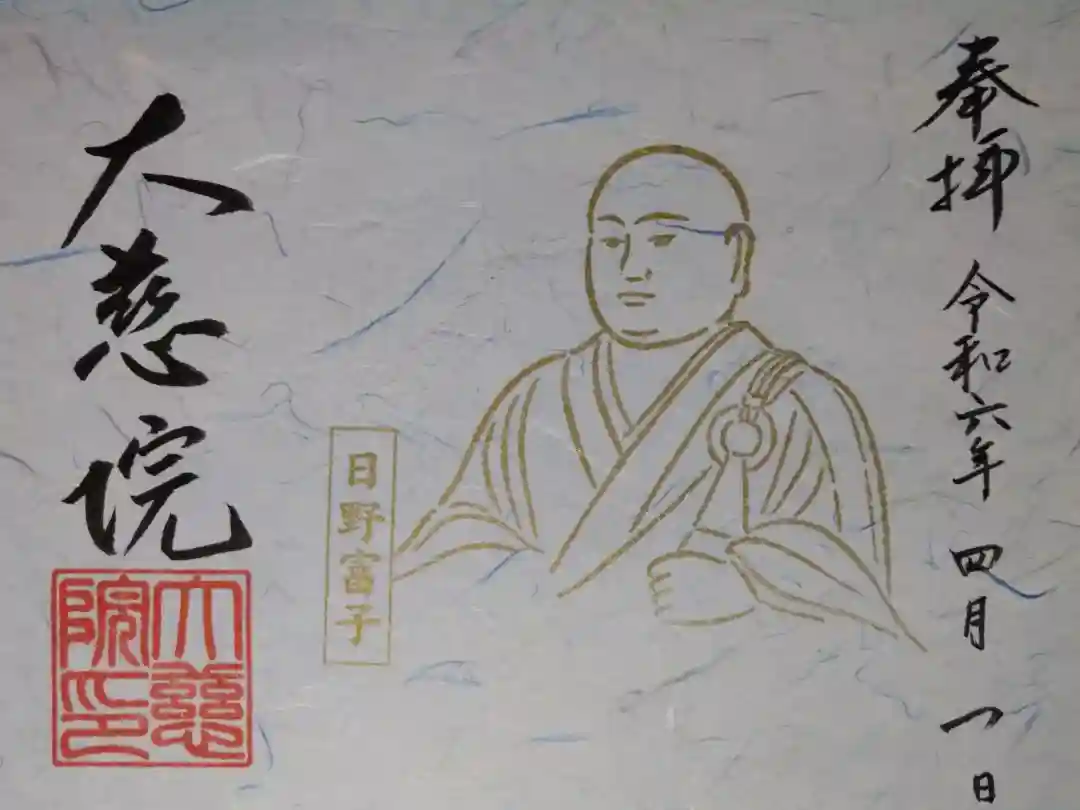 奉拝
令和六年四月一日
日野富子
大慈院
大慈院印